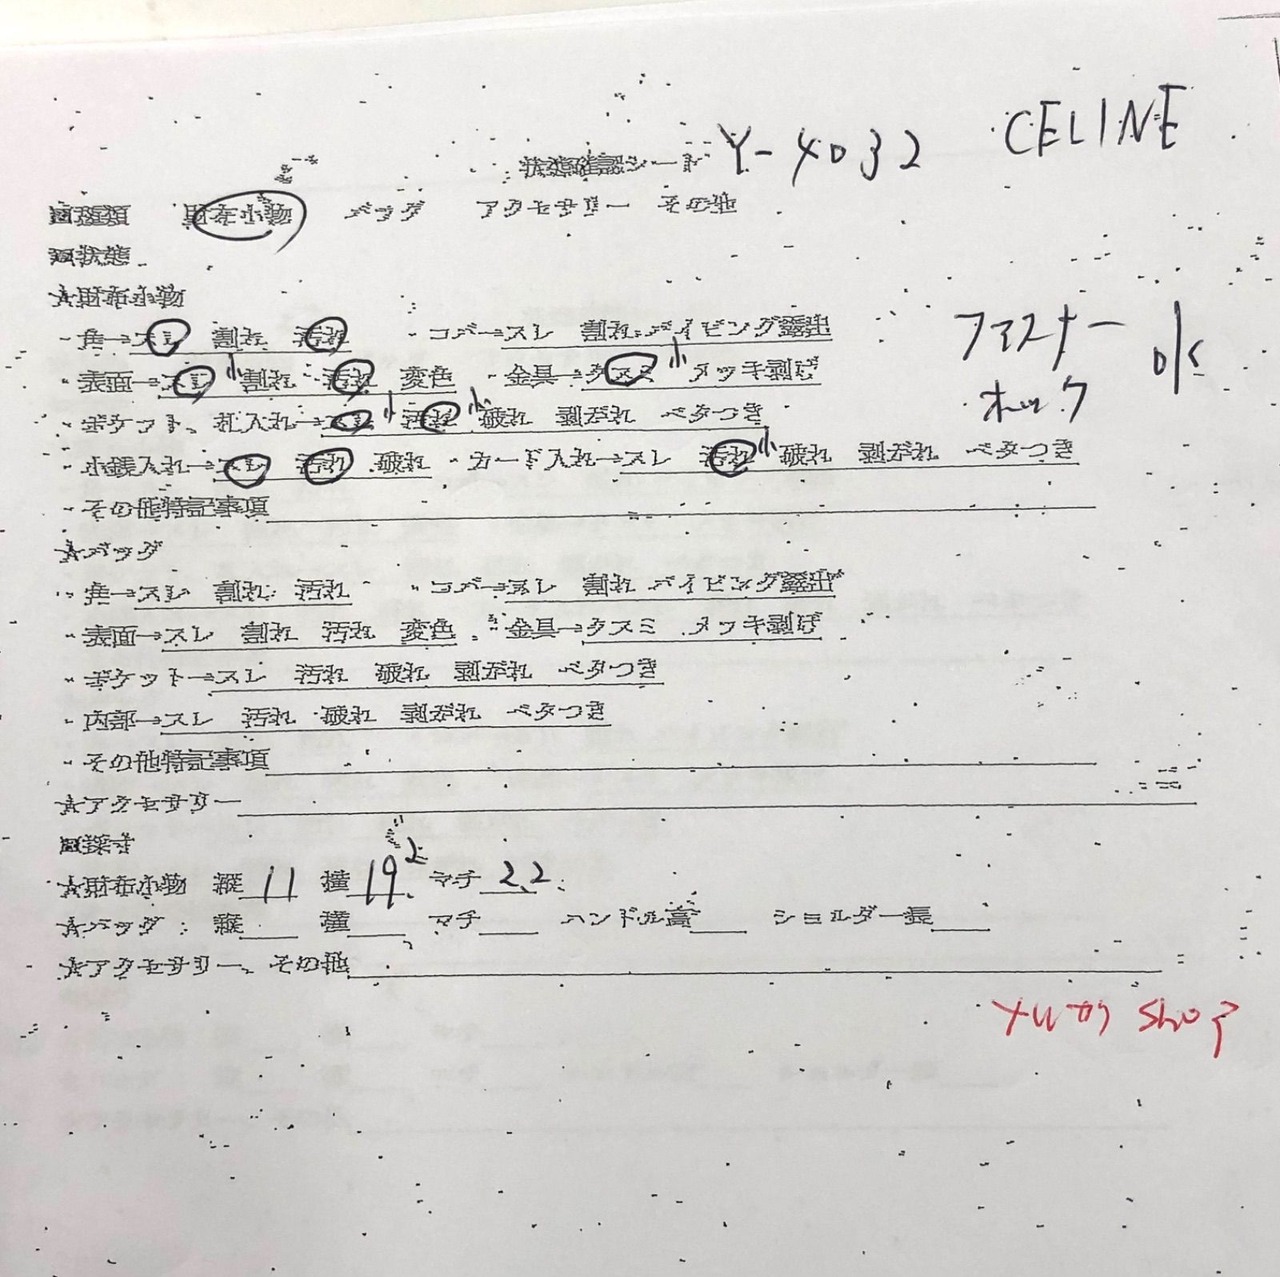 状態確認シート Y-4032 CELINE
■種類 財布小物 バッグ アクセサリー その他
■状態
★財布小物
・角→スレ 割れ 汚れ ・コバ→スレ 割れ パイピング露出
・表面→スレ 小 割れ 汚れ 変色 ・金具→クスミ 小 メッキ剥げ
・ポケット、札入れ→スレ 小 汚れ 小 破れ 剥がれ ベタつき
・小銭入れ→スレ 汚れ 破れ ・カード入れ→スレ 汚れ 小 破れ 剥がれ ベタつき
・その他特記事項
ファスナー
ホック
OK
★バッグ
・角→スレ 割れ 汚れ ・コバ→スレ 割れ パイピング露出
・表面→スレ 割れ 汚れ 変色 ・金具→クスミ メッキ剥げ
・ポケット→スレ 汚れ 破れ 剥がれ ベタつき
・内部→スレ 汚れ 破れ 剥がれ ベタつき
・その他特記事項
★アクセサリー
■採寸
★財布小物 縦 11 横 19.2 マチ 2.2
★バッグ 縦 横 マチ ハンドル高 ショルダー長
★アクセサリー、その他
shop